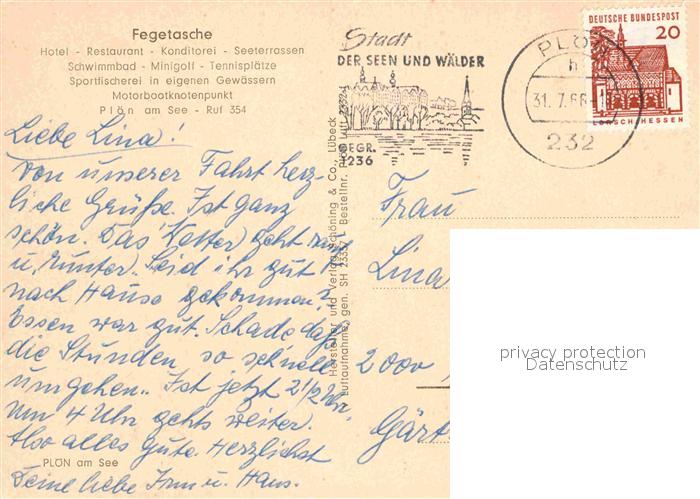 Fegetasche
Hotel - Restaurant - Konditorei - Seeterrassen
Schwimmbad - Minigolf - Tennisplätze
Sportfischerei in eigenen Gewässern
Motorbootknotenpunkt
Plön am See - Ruf 354
Stadt
DER SEEN UND WÄLDER
GEGR.
1236
PLÖN
h
31.7.66
232
DEUTSCHE BUNDESPOST
20
LORSCH/HESSEN
Liebe Lina!
Von unserer Fahrt herz-
liche Grüße. Ist ganz
schön. Das Wetter geht rauf
u. runter. Seid ihr gut
nach Hause gekommen?
Essen war gut. Schade daß
die Stunden so schnell
umgehen. Ist jetzt 2 1/2 Uhr.
Um 4 Uhr gehts weiter.
Also alles gute. Herzlichst
Deine liebe Irm u. Hans.
PLÖN am See
Hersteller und Verlag Schöning & Co., Lübeck
Luftaufnahme, gen. SH Bestellnr. Luft
Frau
Lina
2000
Gärt
privacy protection
Datenschutz